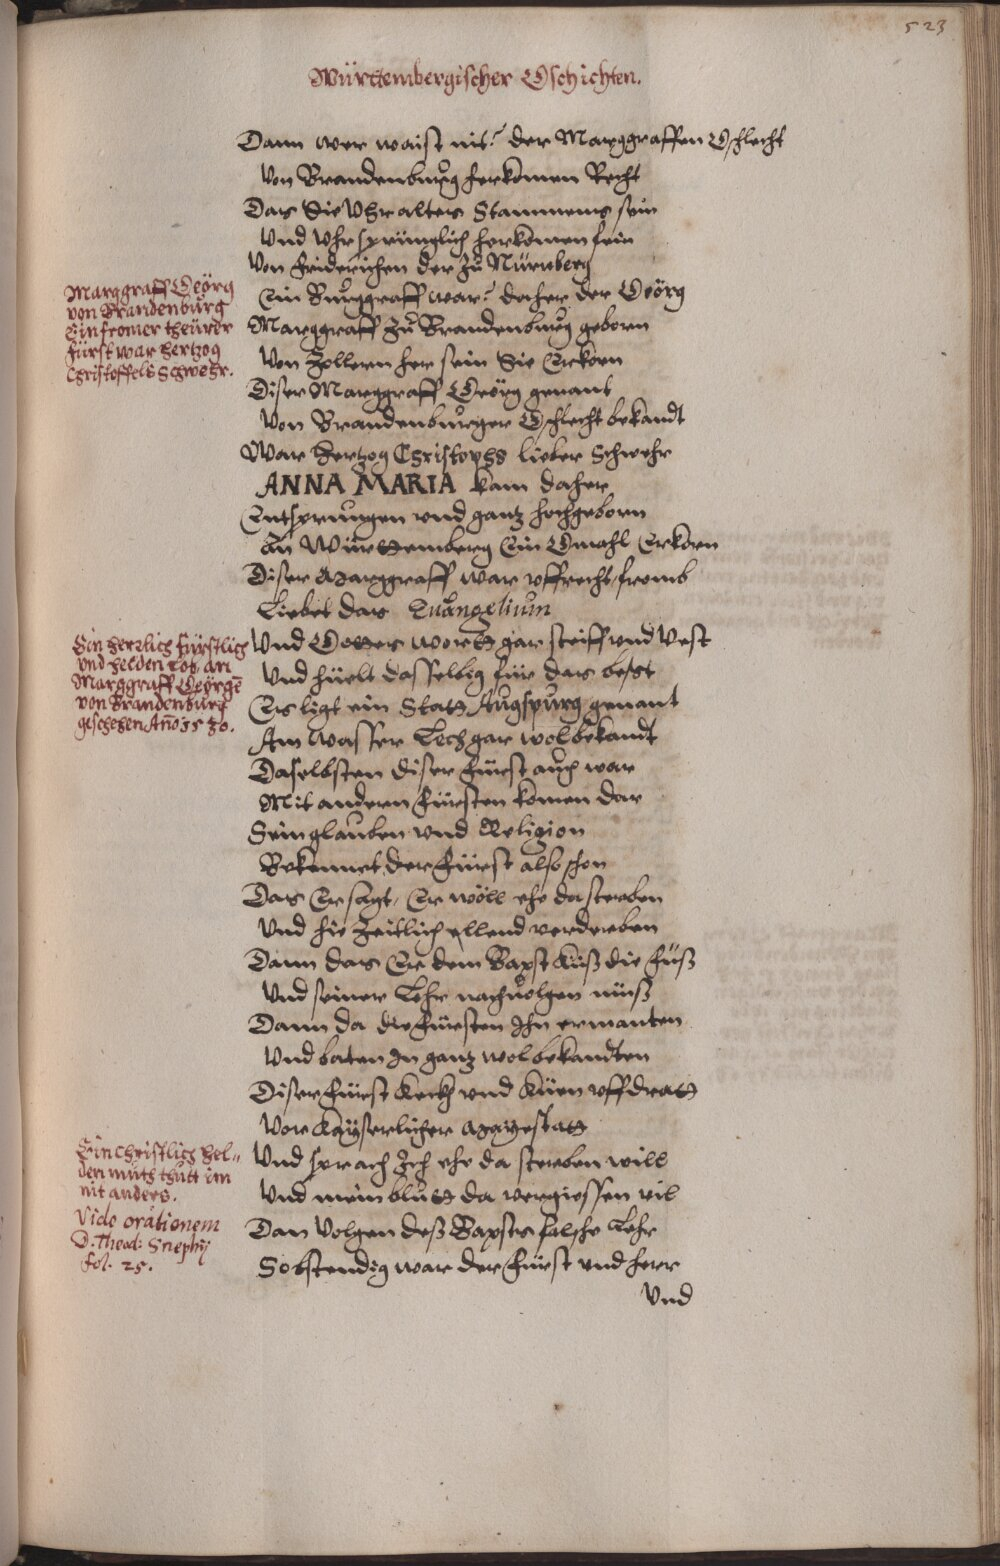 523
Württembergischer Gschichten.
Dann wer waist nit? der Marggraffen Gschlecht
Von Brandenburg herkomen Recht
Das Sie Uhralters Stammens sein
Und Uhrsprünglich herkomen sein
Von Friderichen der Zu Nürnberg
Marggraff Geörg
von Brandenburg
Ein fromer theürer
fürst war hertzog
Christoffels Schwehr.
Ein Burggraff war? daher der Geörg
Marggraff Zu Brandenburg geborn
Von Zollern her sein Sie Erkorn
Diser Marggraff Geörg genant
Von Brandenburger Gschlecht bekandt
War Hertzog Christophs lieber Schwehr
ANNA MARIA kam daher
Entsprungen und gantz hochgeborn
An Württemberg Ein Gmahl Erkorn
Diser Marggraff war uffrecht, fromb
Liebet das Euangelium
Ein herrlich fürstlich
und helden tob an
Marggraff Geörgē
von Brandenburg
geschehen Año 1530.
Und Gottes wortt gar steiff und Vest
Und hüelt dasselbig für das best
Es ligt ein Statt Augspurg genant
Am wasser Lech gar wol bekandt
Daselbsten diser Fürst auch war
Mit andern Fürsten komen dar
Sein glauben und Religion
Bekennet der Fürst also schon
Das Er sagt, Er wöll ehe da sterben
Und hie Zeitlich ellend verderben
Dann das Er dem Bapst küß die füß
Und seiner Lehr nachuolgen müß
Dann da die Fürsten Ihn ermanten
Und baten In gantz wolbekandten
Diser Fürst keckh und küen uffdratt
Vor Kayserlicher Mayestatt
Ein Christlich hel„
den muth thutt im
nit anders.
Vide orationem
D. Theod: Snephÿ
fol. 25.
Und sprach Ich ehe da sterben will
Und mein blutt da vergiessen vil
Dan Volgen deß Bapsts falsche Lehr
So bstendig war der Fürst und herr
Und